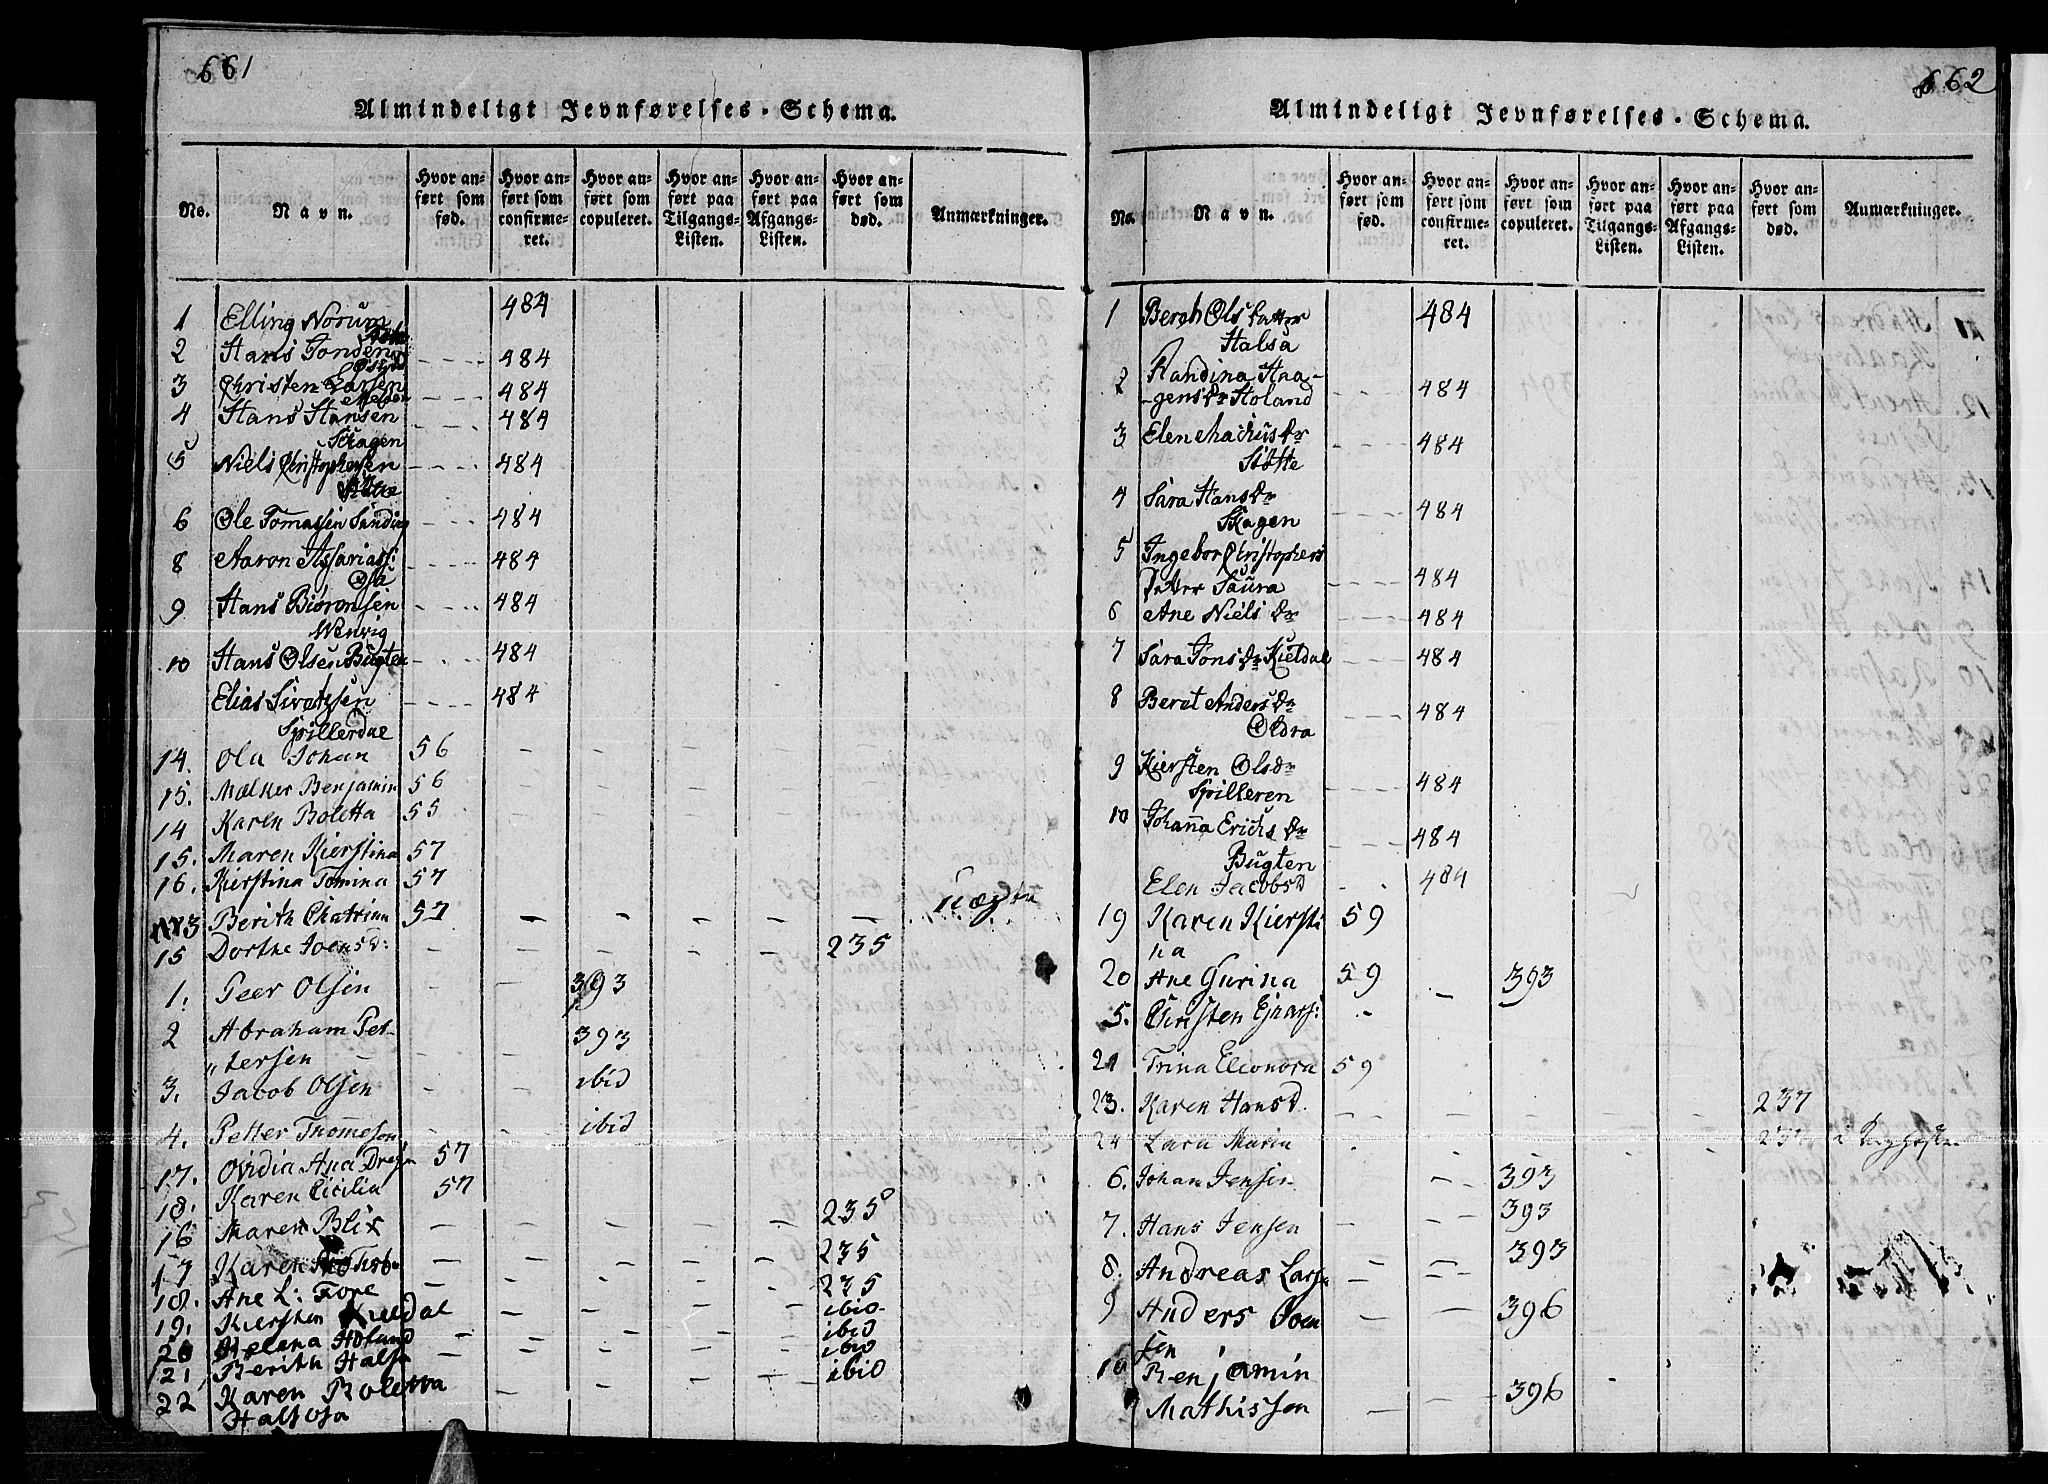 661
Almindeligt Jevnførelses-Schema.
No.
Navn.
Hvor anført som fød.
Hvor anført som confirmeret.
Hvor anført som copuleret.
Hvor anført paa Tilgangs-Listen.
Hvor anført paa Afgangs-Listen.
Hvor anført som død.
Anmærkninger.
1 Elling Norum 484
2 Hans Jonsen 484
3 Christen Larsen 484
4 Hans Hansen 484
Skagen
5 Niels Christophersen 484
6 Ole Tomassen Sanding 484
8 Aaron Assariass: 484
Osa
9 Hans Biøronsen 484
Wenvig
10 Hans Olsen Bugten 484
Elias Sivertsen 484
Spillerdal
14. Ola Johan 56
15. Mælker Benjamin 56
14 Karen Boletta 55
15. Maren Kierstina 57
16. Kierstina Tomina 57
Berith Chatrina 57 uægte
15 Dorthe Joensd: 235
1. Peer Olsen 393
2 Abraham Pet-
„tersen 393
3. Jacob Olsen ibid
4. Petter Thomeson ibid
17. Ovidia Ana 57
18. Karen Cicilia 57
16 Maren Blix 235
17 Karen 235
18. Ane L: Fore 235
19. Kiersten Kieldal ibid
20 Helena Holand ibid
21. Berith Halsa ibid
22 Karen Boletta ibid
Halsosa
662
Almindeligt Jevnførelses-Schema.
No.
Navn.
Hvor anført som fød.
Hvor anført som confirmeret.
Hvor anført som copuleret.
Hvor anført paa Tilgangs-Listen.
Hvor anført paa Afgangs-Listen.
Hvor anført som død.
Anmærkninger.
1 Bereh Olsdatter 484
Halsa
2 Randina Haa-
-gensdr Holand 484
3 Elen Machusdr 484
Støtte
4 Sara Hansdr
Skagen 484
5 Ingebor Christophers
Datter Saura 484
6 Ane Nielsdr 484
7 Sara Jonsdr Kieldal 484
8 Beret Andersdr 484
Oldra
9 Kiersten Olsdr
Spilleren 484
10 Johanna Erichsdr 484
Bugten
Elen Jacobsd 484
19 Karen Kiersti 59
na
20 Ane Gurina 59 393
5. Christen
21 Trina Eleonora 59
23. Karen Hansd. 237
24 Lara Maria
6. Johan Jensen 393
7. Hans Jensen 393
8. Andreas Larsen 393
9 Anders Joen 396
sen
10 Benjamin
Mathisson 396